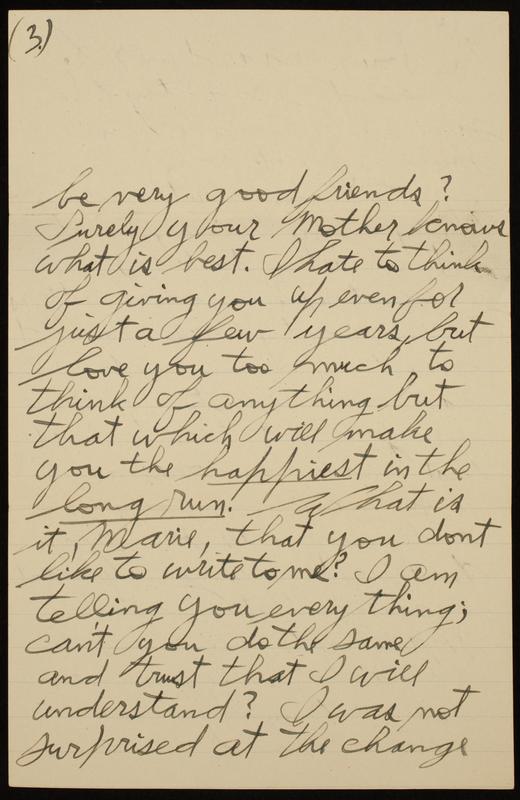 (3.)
be very good friends?
Surely your Mother knows
what is best. I hate to think
of giving you up even for
just a few years, but
love you too much to
think of anything but
that which will make
you the happiest in the
long run. What is
it, Marie, that you dont
like to write to me? I am
telling you everything;
can't you do the same
and trust that I will
understand? I was not
surprised at the change